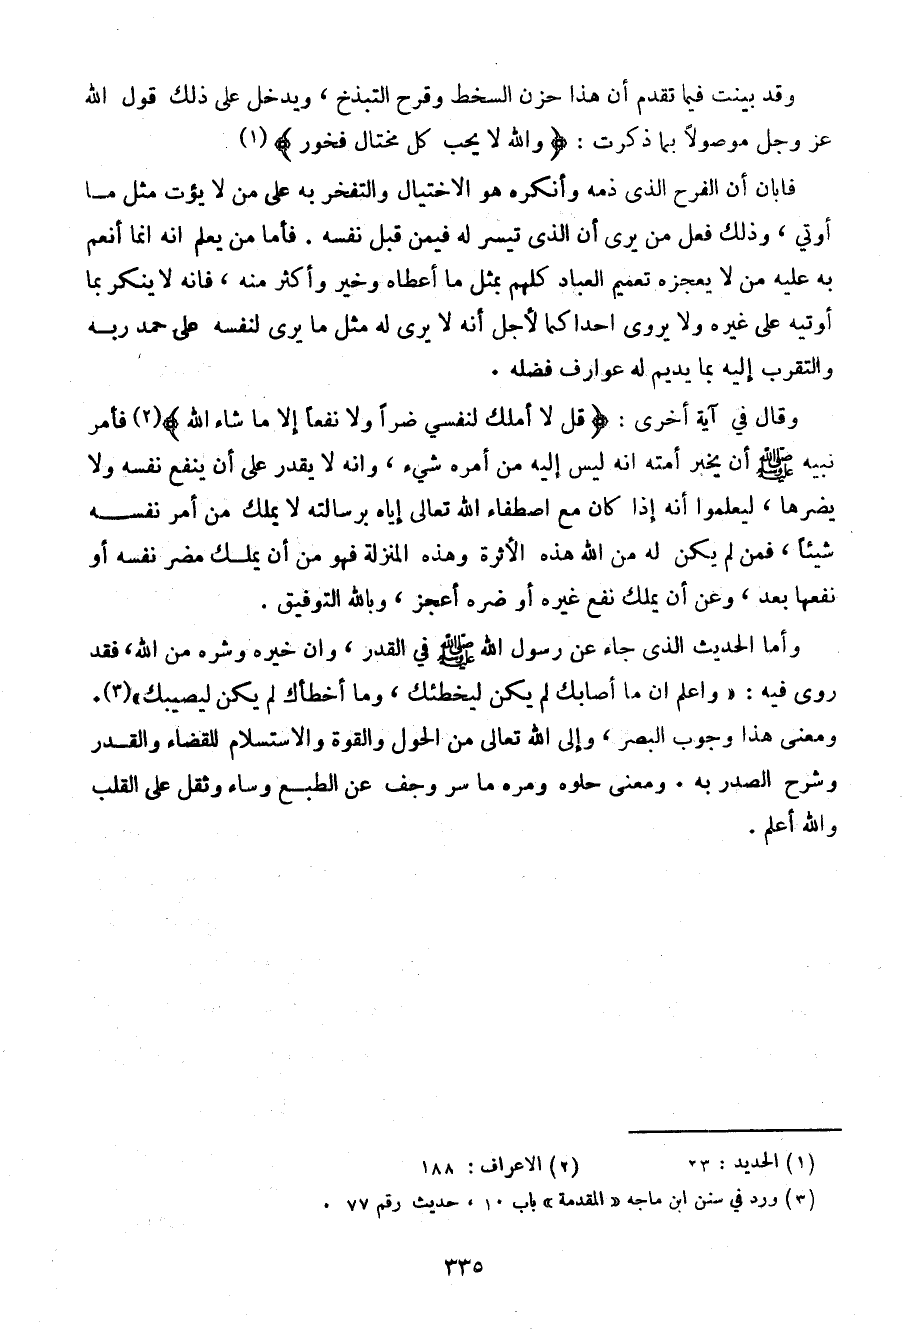 وقد بينت فيما تقدم أن هذا حزن السخط وقرح التبذخ ، ويدخل على ذلك قول الله
عز وجل موصولاً بما ذكرت : ﴿ والله لا يحب كل مختال فخور ﴾ (١) .
فابان أن الفرح الذى ذمه وأنكره هو الاختيال والتفخر به على من لا يؤت مثل مــا
أوتي ، وذلك فعل من يرى أن الذى تيسر له فيمن قبل نفسه . فأما من يعلم انه انما أنعم
به عليه من لا يعجزه تعميم العباد كلهم بمثل ما أعطاه وخير وأكثر منه ، فانه لا ينكر بما
أوتيه على غيره ولا يروى احدا كما لأجل أنه لا يرى له مثل ما يرى لنفسه على حمد ربــه
والتقرب إليه بما يديم له عوارف فضله .
وقال في آية أخرى : ﴿ قل لا أملك لنفسي ضراً ولا نفعاً إلا ما شاء الله ﴾(٢) فأمر
نبيه ﷺ أن يخبر أمته انه ليس إليه من أمره شيء ، وانه لا يقدر على أن ينفع نفسه ولا
يضرها ، ليعلموا أنه إذا كان مع اصطفاء الله تعالى إياه برسالته لا يملك من أمر نفســـه
شيئاً ، فمن لم يكن له من الله هذه الأثرة وهذه المنزلة فهو من أن يملــك مضر نفسه أو
نفعها بعد ، وعن أن يملك نفع غيره أو ضره أعجز ، وبالله التوفيق .
وأما الحديث الذى جاء عن رسول الله ﷺ في القدر ، وان خيره وشره من الله، فقد
روى فيه : « واعلم ان ما أصابك لم يكن ليخطئك ، وما أخطأك لم يكن ليصيبك»(٣).
ومعنى هذا وجوب البصر ، وإلى الله تعالى من الحول والقوة والاستسلام للقضاء والقــدر
وشرح الصدر به . ومعنى حلوه ومره ما سر وجف عن الطبــع وساء وثقل على القلب
والله أعلم .
(١) الحديد : ٢٣ (٢) الاعراف : ١٨٨
(٣) ورد في سنن ابن ماجه « المقدمة » باب ١٠ ، حديث رقم ٧٧ .
٣٣٥